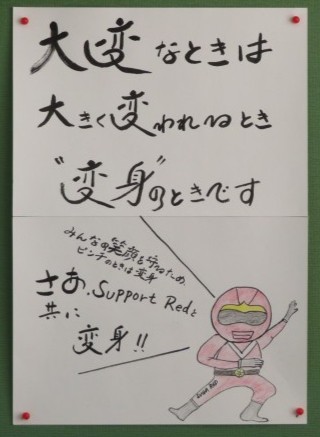 大変なときは
大きく変われるとき
"変身"のときです
みんなの笑顔を守るため、
ピンチのときは変身
さあ、Support Redと
共に
変身!!